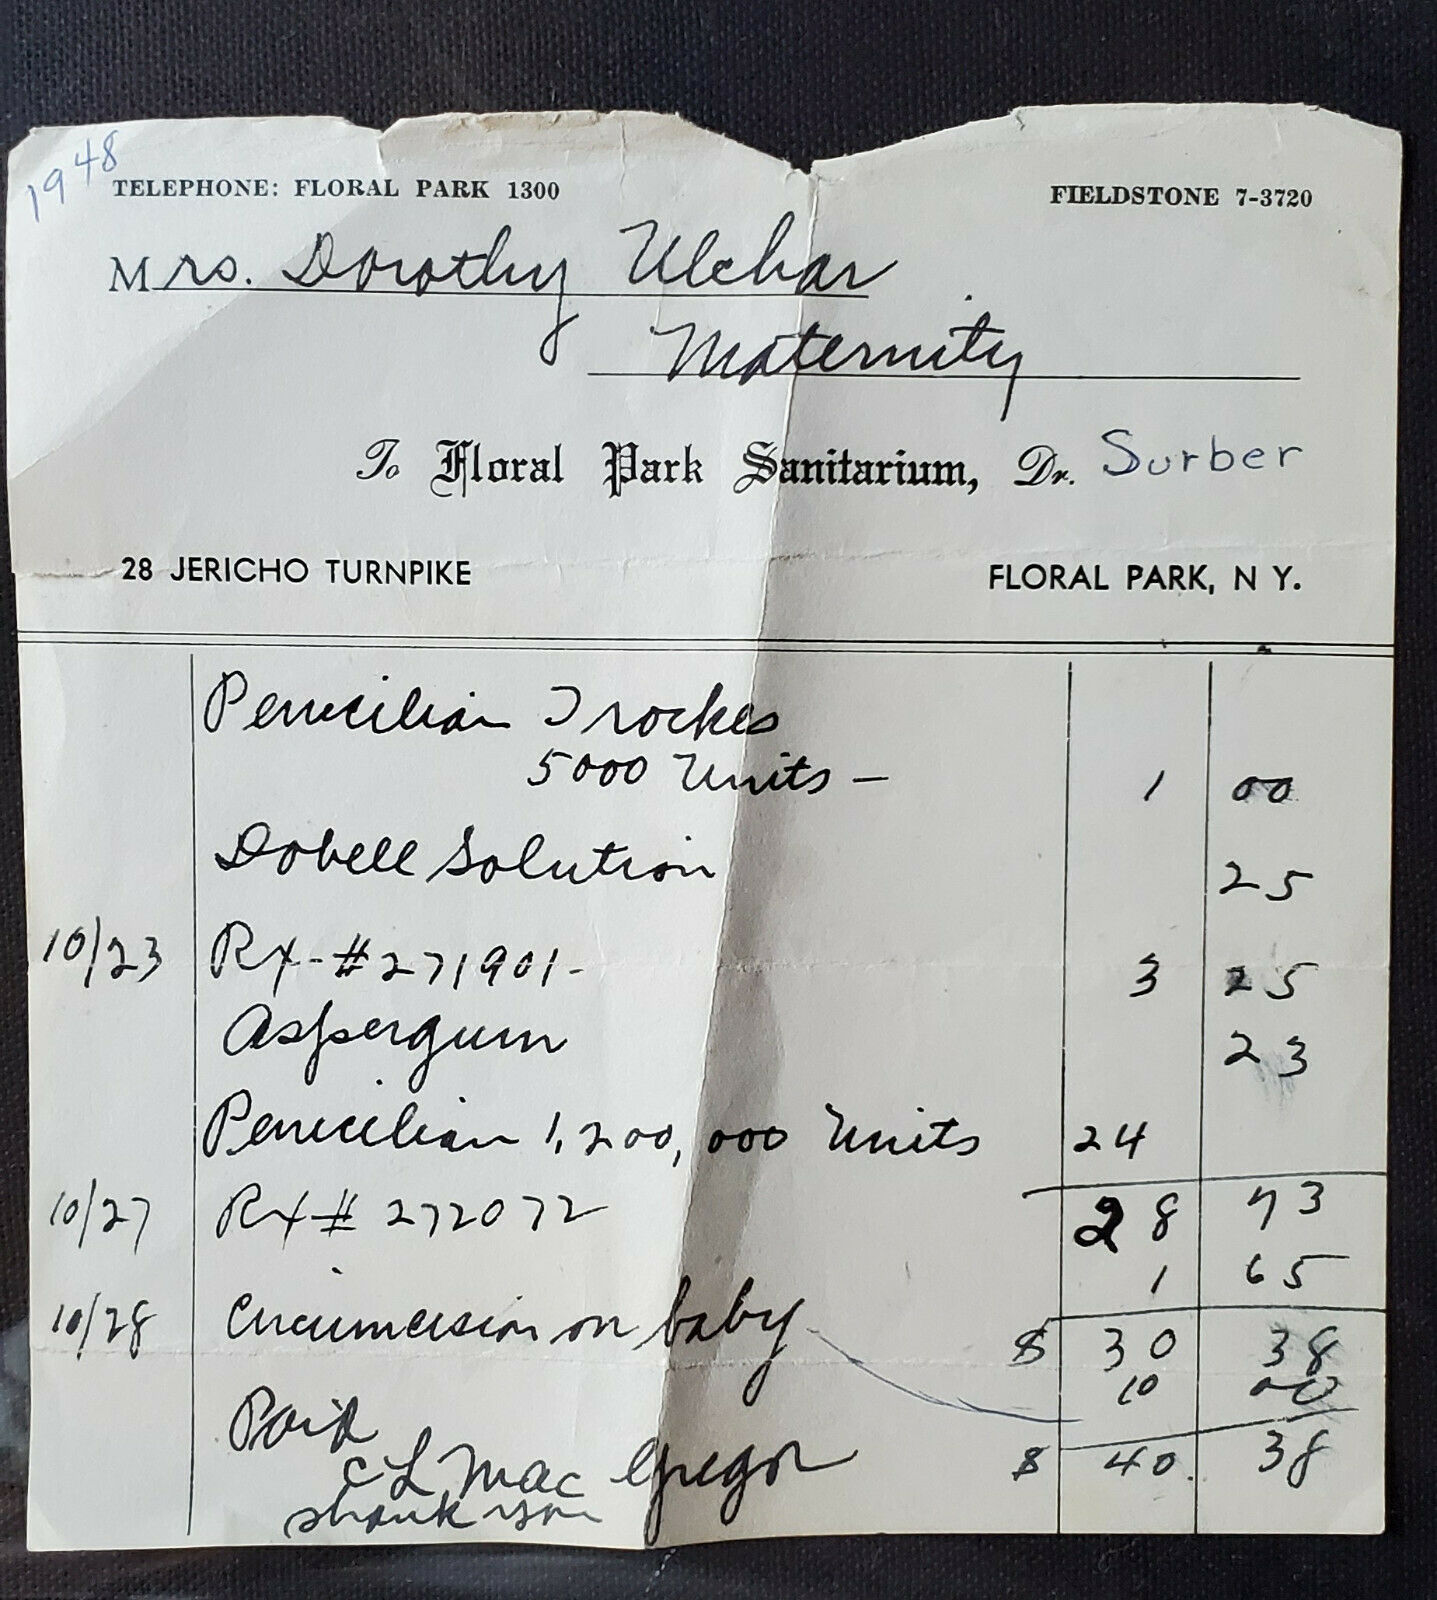 1948
TELEPHONE: FLORAL PARK 1300 FIELDSTONE 7-3720
Mrs. Dorothy Ulchar
Maternity
To Floral Park Sanitarium, Dr. Surber
28 JERICHO TURNPIKE FLORAL PARK, N Y.
Penicilian Troches
5000 Units — 1 00
Dobell Solution 25
10/23 Rx-#271901- 3 25
Aspergum 23
Penicilian 1,200,000 Units 24
10/27 Rx# 272072 28 73
1 65
10/28 Circumcision on baby $ 30 38
10 00
Paid
C L MacGregor $ 40. 38
thank you